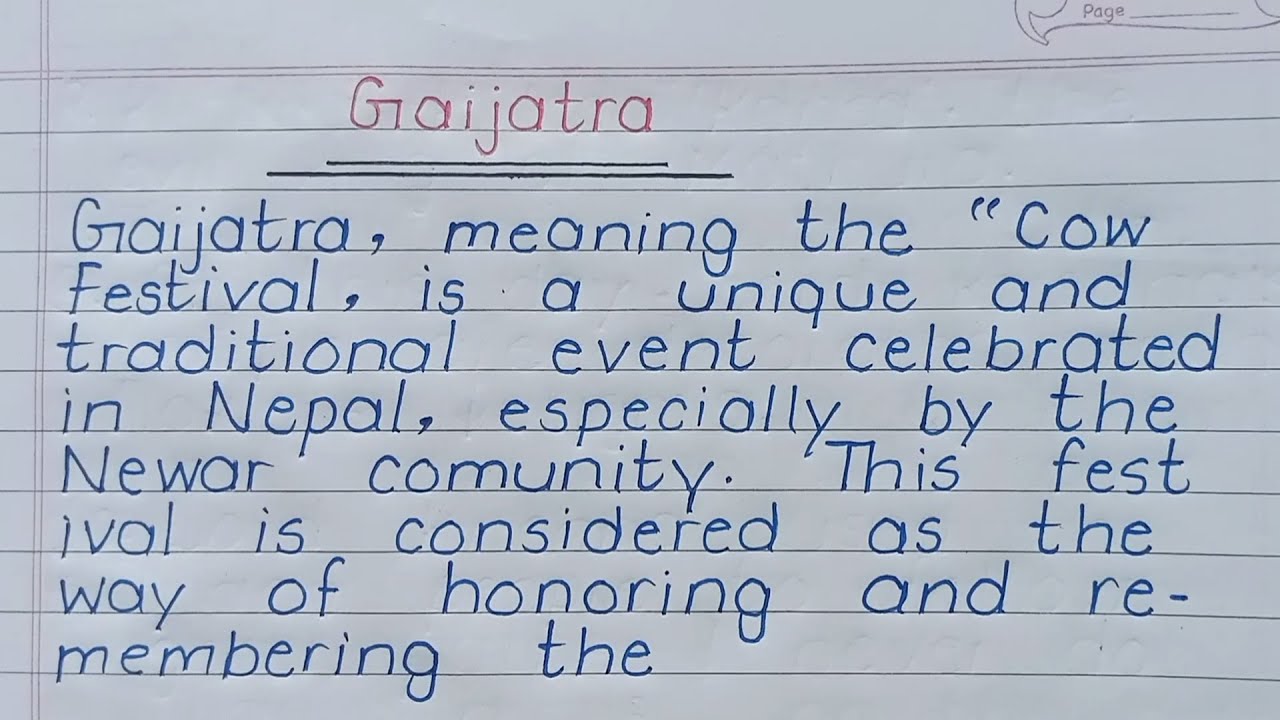 Page
Gaijatra
Gaijatra, meaning the "Cow
Festival, is a unique and
traditional event celebrated
in Nepal, especially by the
Newar comunity. This fest
ival is considered as the
way of honoring and re-
membering the